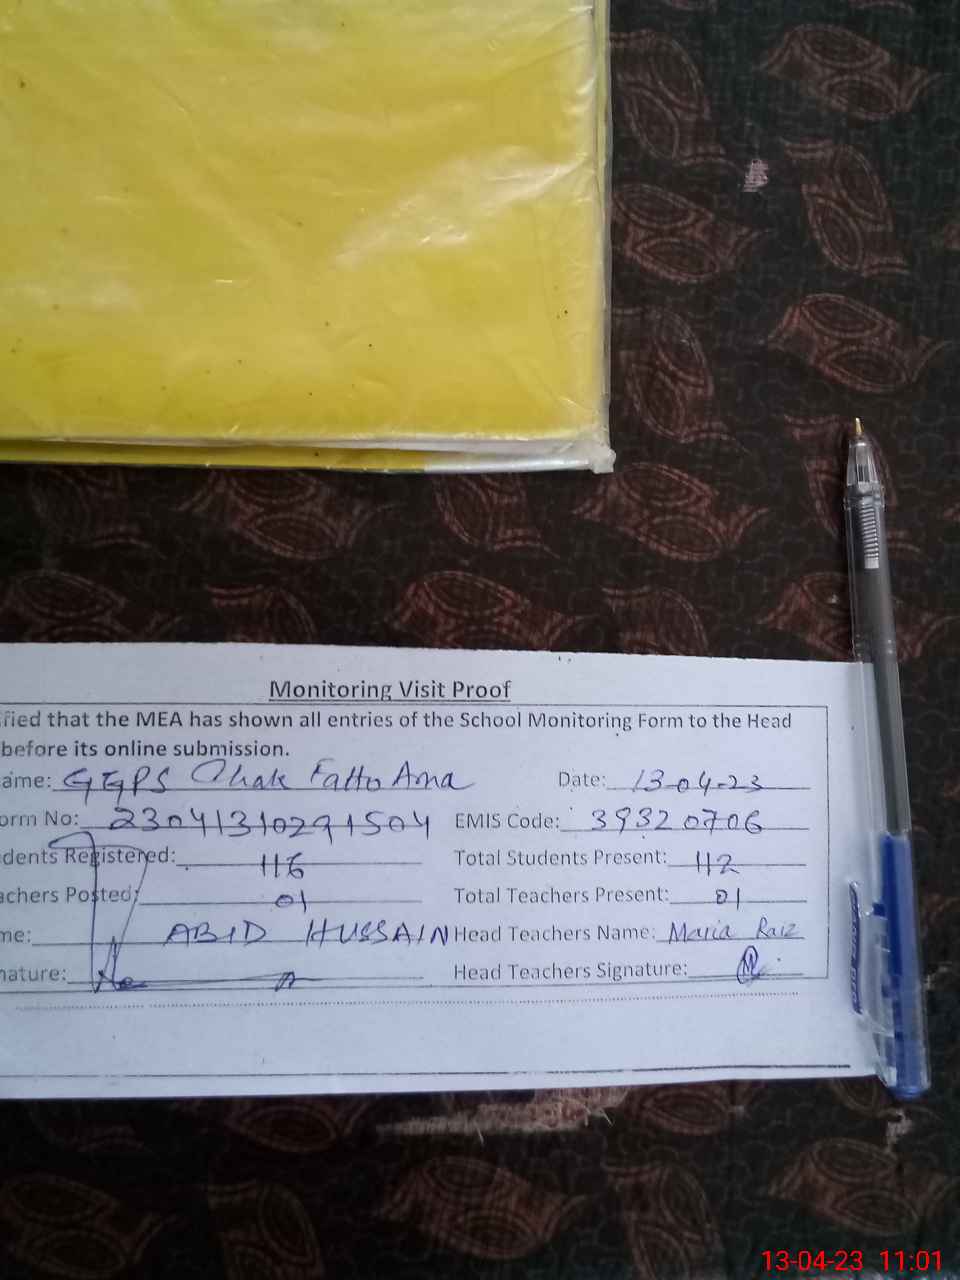 Monitoring Visit Proof
fied that the MEA has shown all entries of the School Monitoring Form to the Head
before its online submission.
ame: GGPS Chak Fatto Ana Date: 13-04-23
orm No: 23041310291504 EMIS Code: 39320706
dents Registered: 116 Total Students Present: 112
achers Posted: 01 Total Teachers Present: 01
me: ABID HUSSAIN Head Teachers Name: Maria Raiz
nature: Head Teachers Signature:
13-04-23 11:01